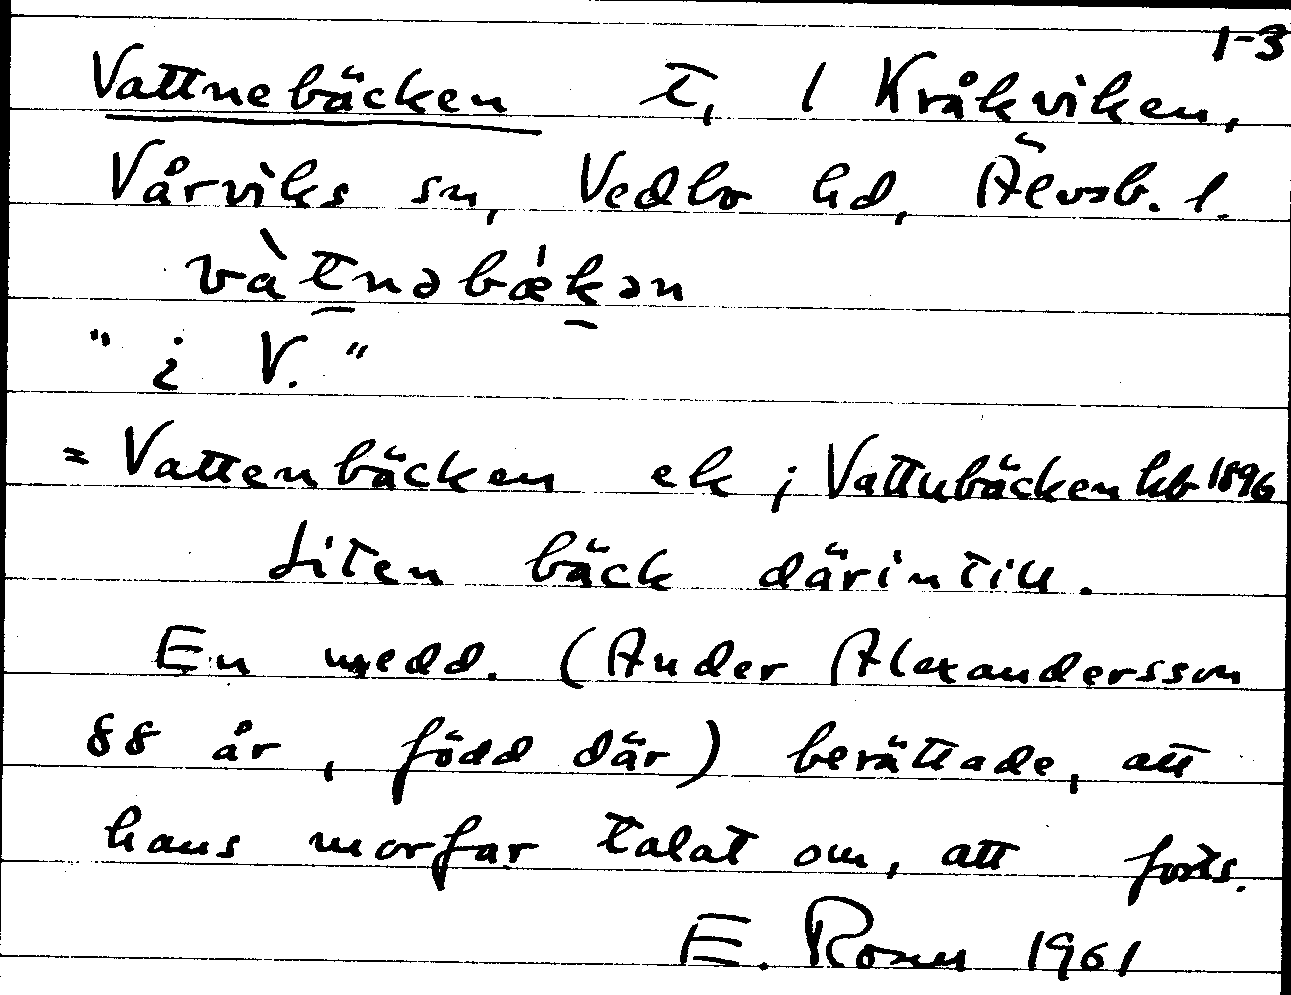 1-3
Vattnebäcken t, 1 Kråkviken,
Vårviks sn, Vedbo hd, Älvsb. l.
và̀t̲nəbæ̍k̲ən
"i V."
= Vattenbäcken ek; Vattubäcken hb 1896
Liten bäck därintill.
En medd. (Ander Alexandersson
88 år, född där) berättade, att
hans morfar talat om, att forts.
E. Rosen 1961